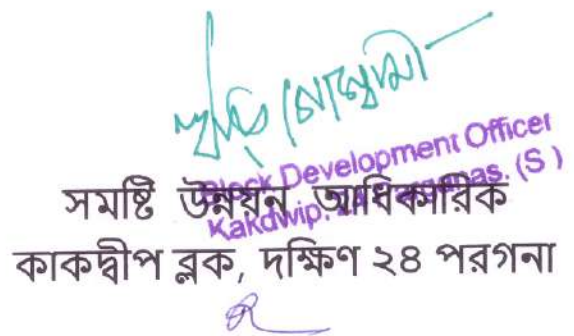 Block Development Officer
Kakdwip, 24 Parganas. (S)
সমষ্টি উন্নয়ন আধিকারিক
কাকদ্বীপ ব্লক, দক্ষিণ ২৪ পরগনা